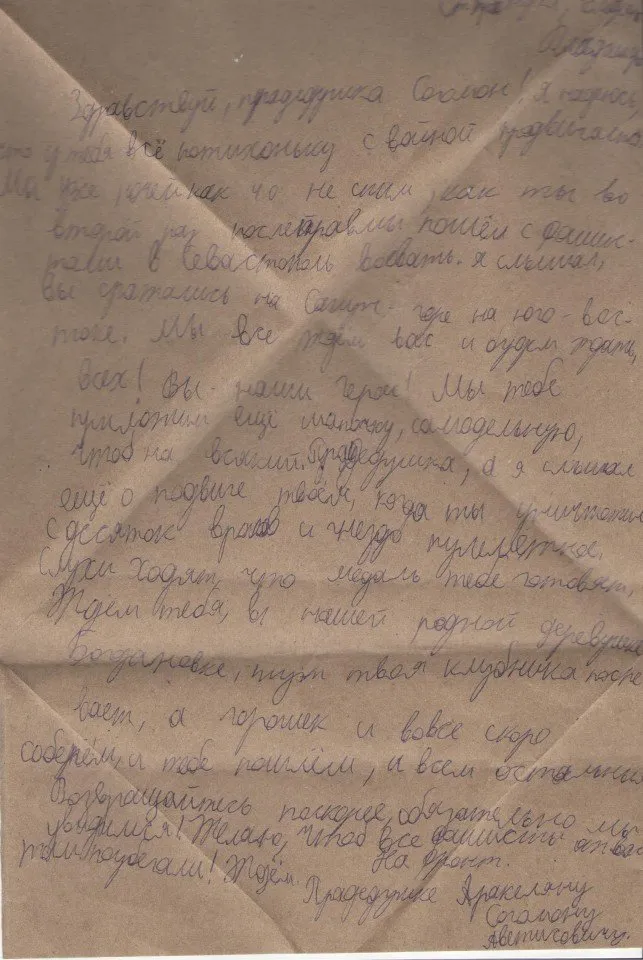 Владимир
Здравствуй, прадедушка Согомон! Я надеюсь,
что у тебя всё потихоньку с войной продвигается.
Мы уже ночей как чо не спим, как ты во
второй раз после травмы пошёл с фашис-
тами в Севастополь воевать. Я слышал,
вы сражались на Сапун-горе на юго-вос-
токе. Мы все ждём вас и будем ждать,
всех! Вы - наши герои! Мы тебе
приложим ещё малому, самодельную,
чтоб на всякий. Прадедушка, а я слышал
ещё о подвиге твоём, когда ты уничтожил
с десяток врагов и гнездо пулемётное.
Слухи ходят, что медаль тебе готовят.
Ждём тебя, в нашей родной деревушке
Богдановке, тут твоя клубничка поспе
вает, а горошек и вовсе скоро
соберём, и тебе пошлём, и всем остальным
Возвращайтесь поскорее, обязательно мы
увидимся! Желаю, чтоб все фашисты от вас
поубегали! Ждём.
На фронт.
Прадедушке Аракеляну
Согомону
Аветисовичу.